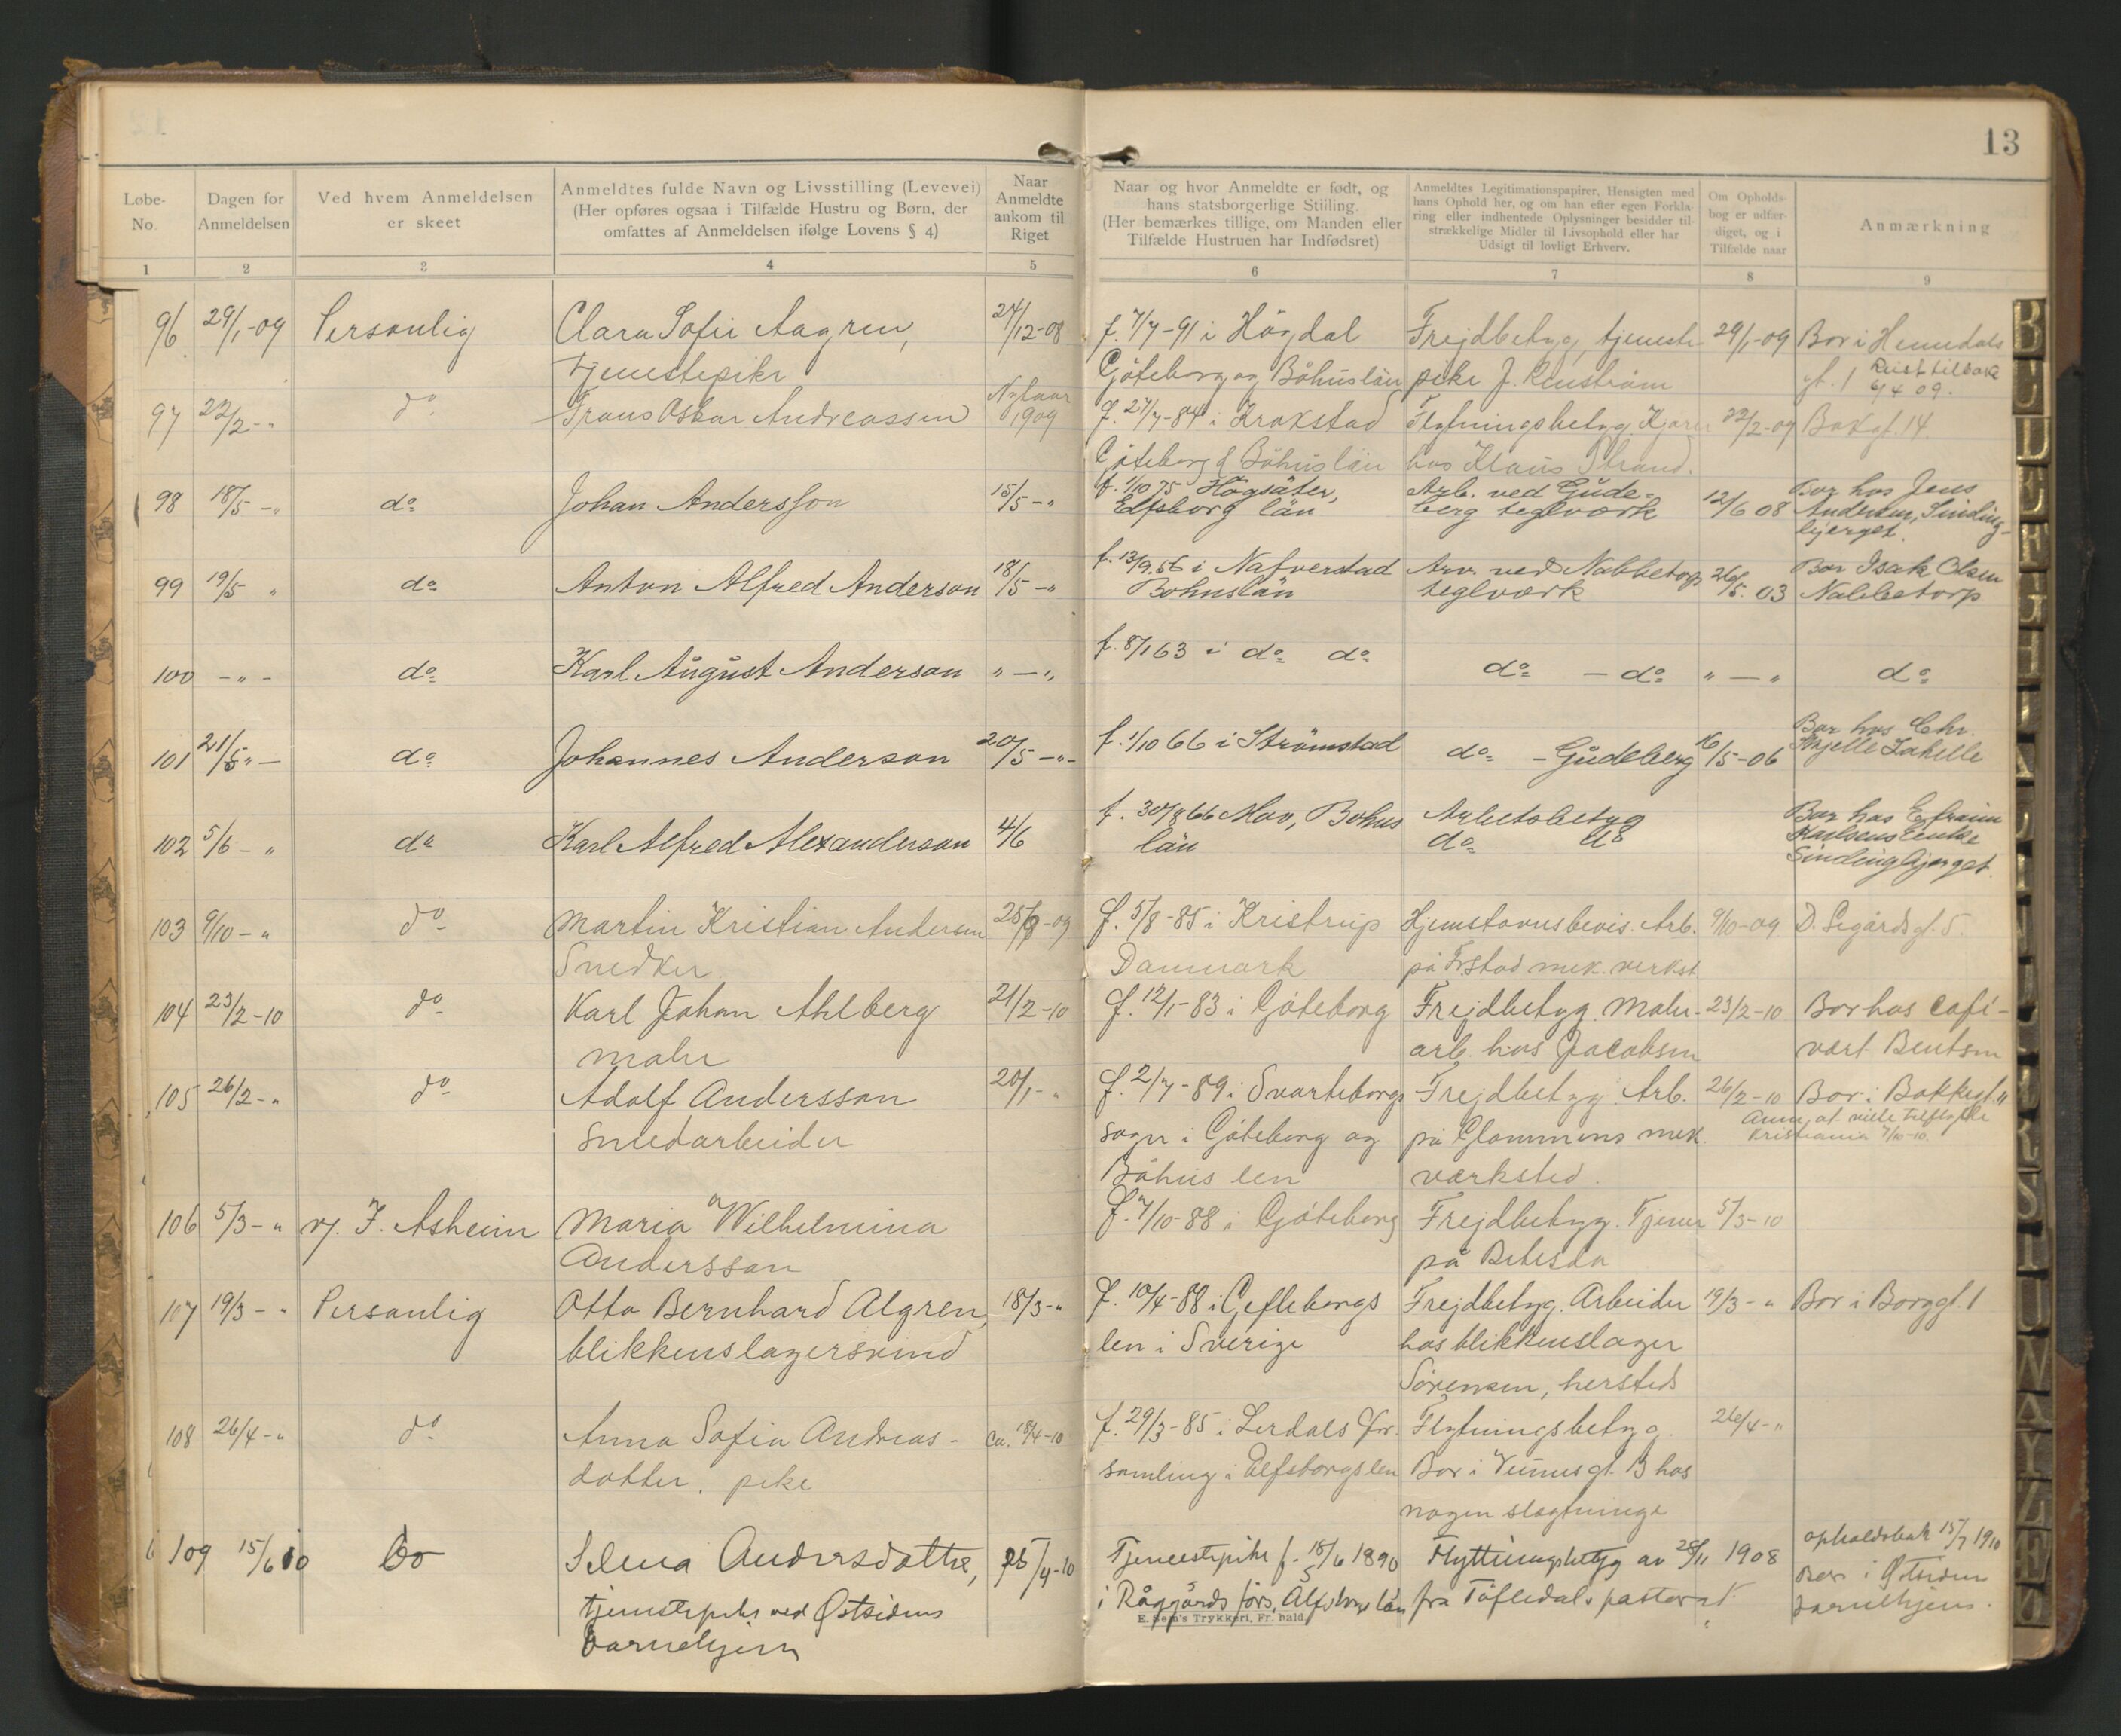 13
Løbe-
No.
Dagen for
Anmeldelsen
Ved hvem Anmeldelsen
er skeet
Anmeldtes fulde Navn og Livsstilling (Levevei)
(Her opføres ogsaa i Tilfælde Hustru og Børn, der
omfattes af Anmeldelsen ifølge Lovens § 4)
Naar
Anmeldte
ankom til
Riget
Naar og hvor Anmeldte er født, og
hans statsborgerlige Stiiling.
(Her bemærkes tillige, om Manden eller
Tilfælde Hustruen har Indfødsret)
Anmeldtes Legitimationspapirer, Hensigten med
hans Ophold her, og om han efter egen Forkla-
ring eller indhentede Oplysninger besidder til-
strækkelige Midler til Livsophold eller har
Udsigt til lovligt Erhverv.
Om Opholds-
bog er udfær-
diget, og i
Tilfælde naar
Anmærkning
1 2 3 4 5 6 7 8 9
96 29/1-09 Personlig Clara Sofie Aagren, 27/12-08 f. 7/7-91 i Högdal Frejdbetyg, tjeneste- 29/1-09 Bor i Hennedals
Tjenestepike Göteborg og Bohuslän pike J. Renström gt. 1 Reist tilbake
6/4 09.
97 22/2-" do Frans Oskar Andreassen Nytaar 1909 f. 27/7-84 i Krokstad Flytningsbetyg Kjører 22/2-09 Bakgt. 14.
Göteborg & Bohuslän hos Klaus Strand.
98 18/5-" do Johan Andersson 15/5-" f. 1/10 75 Högsäter, Arb. ved Gude- 12/6 08 Bor hos Jens
Elfsborg län berg teglværk Andersen, Sinding-
bjerget.
99 19/5 " do Anton Alfred Anderson 18/5-" f. 13/9.56 i Nafverstad Arb. ved Nabbetorp 26/5. 03 Bor Isak Olsen
Bohuslän teglværk Nabbetorp
100 -"- do Karl August Anderson "-" f. 8/1 63 i do do do - do "-" do
101 21/5"- do Johannes Anderson 20/5-"- f. 1/10 66 i Strömstad do - Gudeberg 16/5-06 Bor hos Chr.
102 5/6-" do Karl Alfred Alexanderson 4/6 f. 30/8 66 Mov, Bohus Arbetsbetyg Bor hos Efraim
län do do Karlsens Enke
Sindingbjerget.
103 9/10-" do Martin Kristian Andersen 25/9-09 f. 5/8-85 i Kristrup Hjemstavnsbevis. Arb. 9/10-09 D. Segårdsgt. 5.
Snedker. Danmark på F.stad mek. verkst.
104 23/2-10 do Karl Johan Ahlberg 21/2-10 f. 12/1-83 i Göteborg Frejdbetyg. Maler- 23/2-10 Bor hos café-
maler arb. hos Jacobsen vært Bentsen
105 26/2-" do Adolf Andersson 20/1-" f. 2/7-89 i Svarteborgs Frejdbetyg Arb. 26/2-10 Bor i Bakkegt. 11
smedarbeider sogn i Göteborg og på Glommens mek. Anm. at ville tilflytte
Kristiania 7/10-10.
Bohus len værksted.
106 5/3-" v/ F. Asheim Maria Wilhelmina f. 7/10-88 i Göteborg Frejdbetyg. Tjener 5/3-10
Andersson på Betesda
107 19/3-" Personlig Otto Bernhard Algren, 18/3-" f. 10/4-88 i Gefleborgs Frejdbetyg. Arbeider 19/3-" Bor i Borggt. 1
blikkenslagersvend len i Sverige hos blikkenslager
Sörensen, hersteds
108 26/4-" do Anna Sofia Andreas- ca. 18/4-10 f. 29/3-85 i Lerdals for- Flytningsbetyg. 26/4-"
dotter, pike samling i Elfsborgs len Bor i Venusgt. 13 hos
nogen slægtninge
109 15/6 10 Do Selma Andersdotter, 25/4-10 Tjenestepike f. 18/6 1890 Flyttningsbetyg av 28/11 1908 opholdsbok 15/7 1910
tjenestepike ved Østsidens i Råggärds förs. Älfsborgs län fra Töftedals pastorat Bor i Østsidens
barnehjem barnehjem.
E. Sem's Trykkeri, Fr. hald.